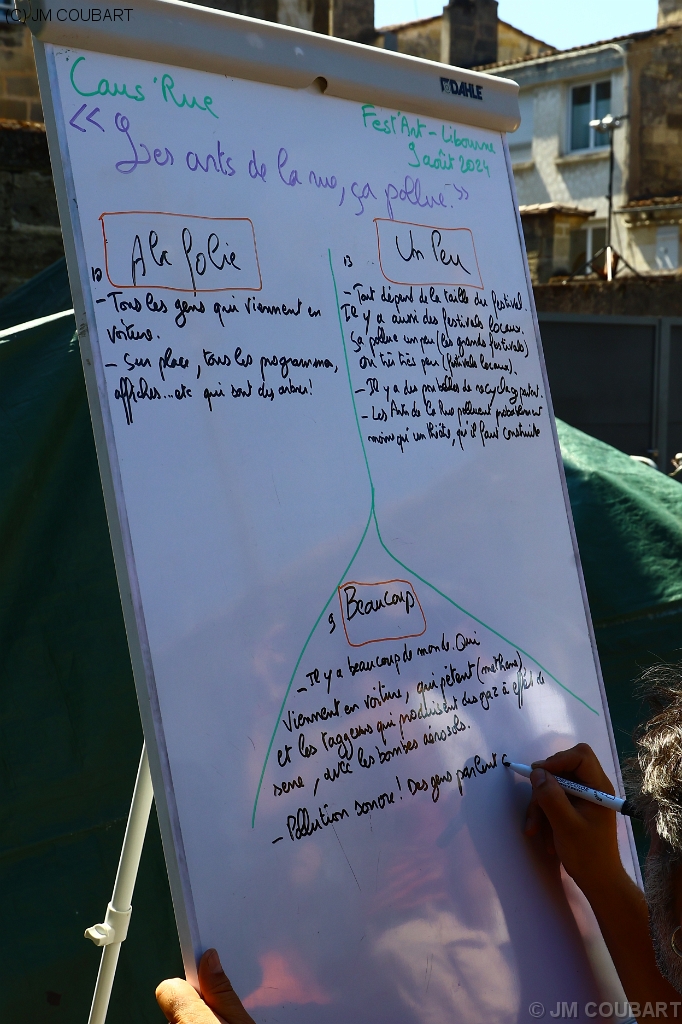 (C) JM COUBART
DAHLE
Caus'Rue
Fest'Art - Libourne
9 août 2024
<< Les arts de la rue, ça pollue. >>
A la folie
10
- Tous les gens qui viennent en
voiture.
- Sur place, tous les programmes,
affiches...etc qui sont des arbres!
Un Peu
13
- Tout dépend de la taille du festival.
Il y a aussi des festivals locaux.
ça pollue un peu (les grands festivals)
ou très très peu (festivals locaux).
- Il y a des poubelles de recyclage partout.
- Les Arts de la Rue polluent probablement
moins qu'un théâtre, qu'il faut construire
Beaucoup
9
- Il y a beaucoup de monde. Qui
viennent en voiture, qui pètent (méthane),
et les taggeurs qui produisent des gaz à effet de
serre, avec les bombes aérosols.
- Pollution sonore! Des gens parlent
© JM COUBART